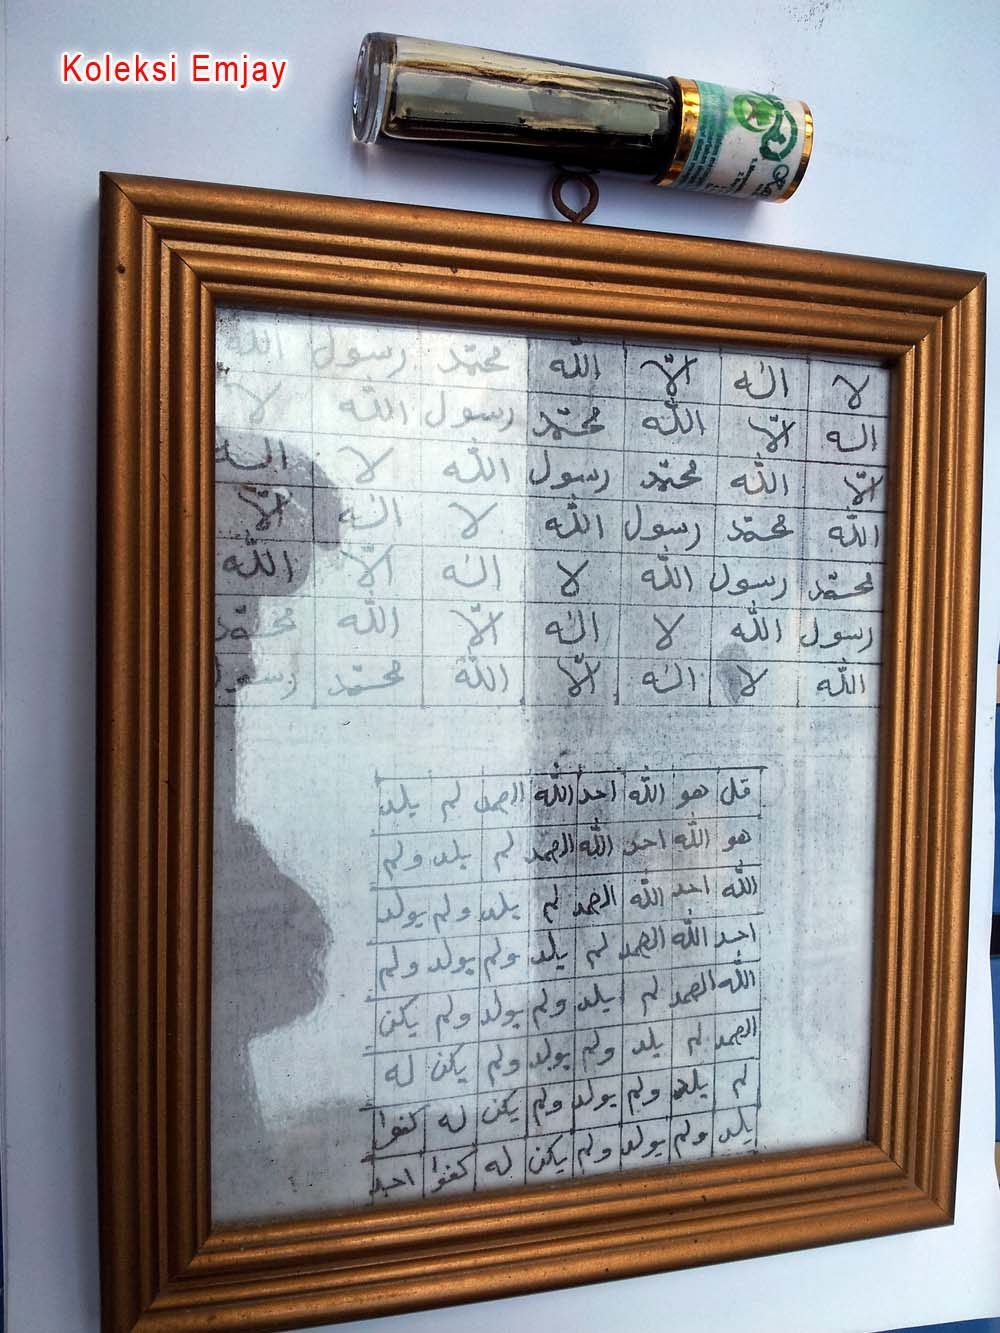 Koleksi Emjay
لا اله الّا الله محمّد رسول الله
اله الّا الله محمّد رسول الله لا
الّا الله محمّد رسول الله لا اله
الله محمّد رسول الله لا اله الّا
محمّد رسول الله لا اله الّا الله
رسول الله لا اله الّا الله محمّد
الله لا اله الّا الله محمّد رسول
قل هو الله احد الله الصمد لم يلد
هو الله احد الله الصمد لم يلد ولم
الله احد الله الصمد لم يلد ولم يولد
احد الله الصمد لم يلد ولم يولد ولم
الله الصمد لم يلد ولم يولد ولم يكن
الصمد لم يلد ولم يولد ولم يكن له
لم يلد ولم يولد ولم يكن له كفوا
يلد ولم يولد ولم يكن له كفوا احد